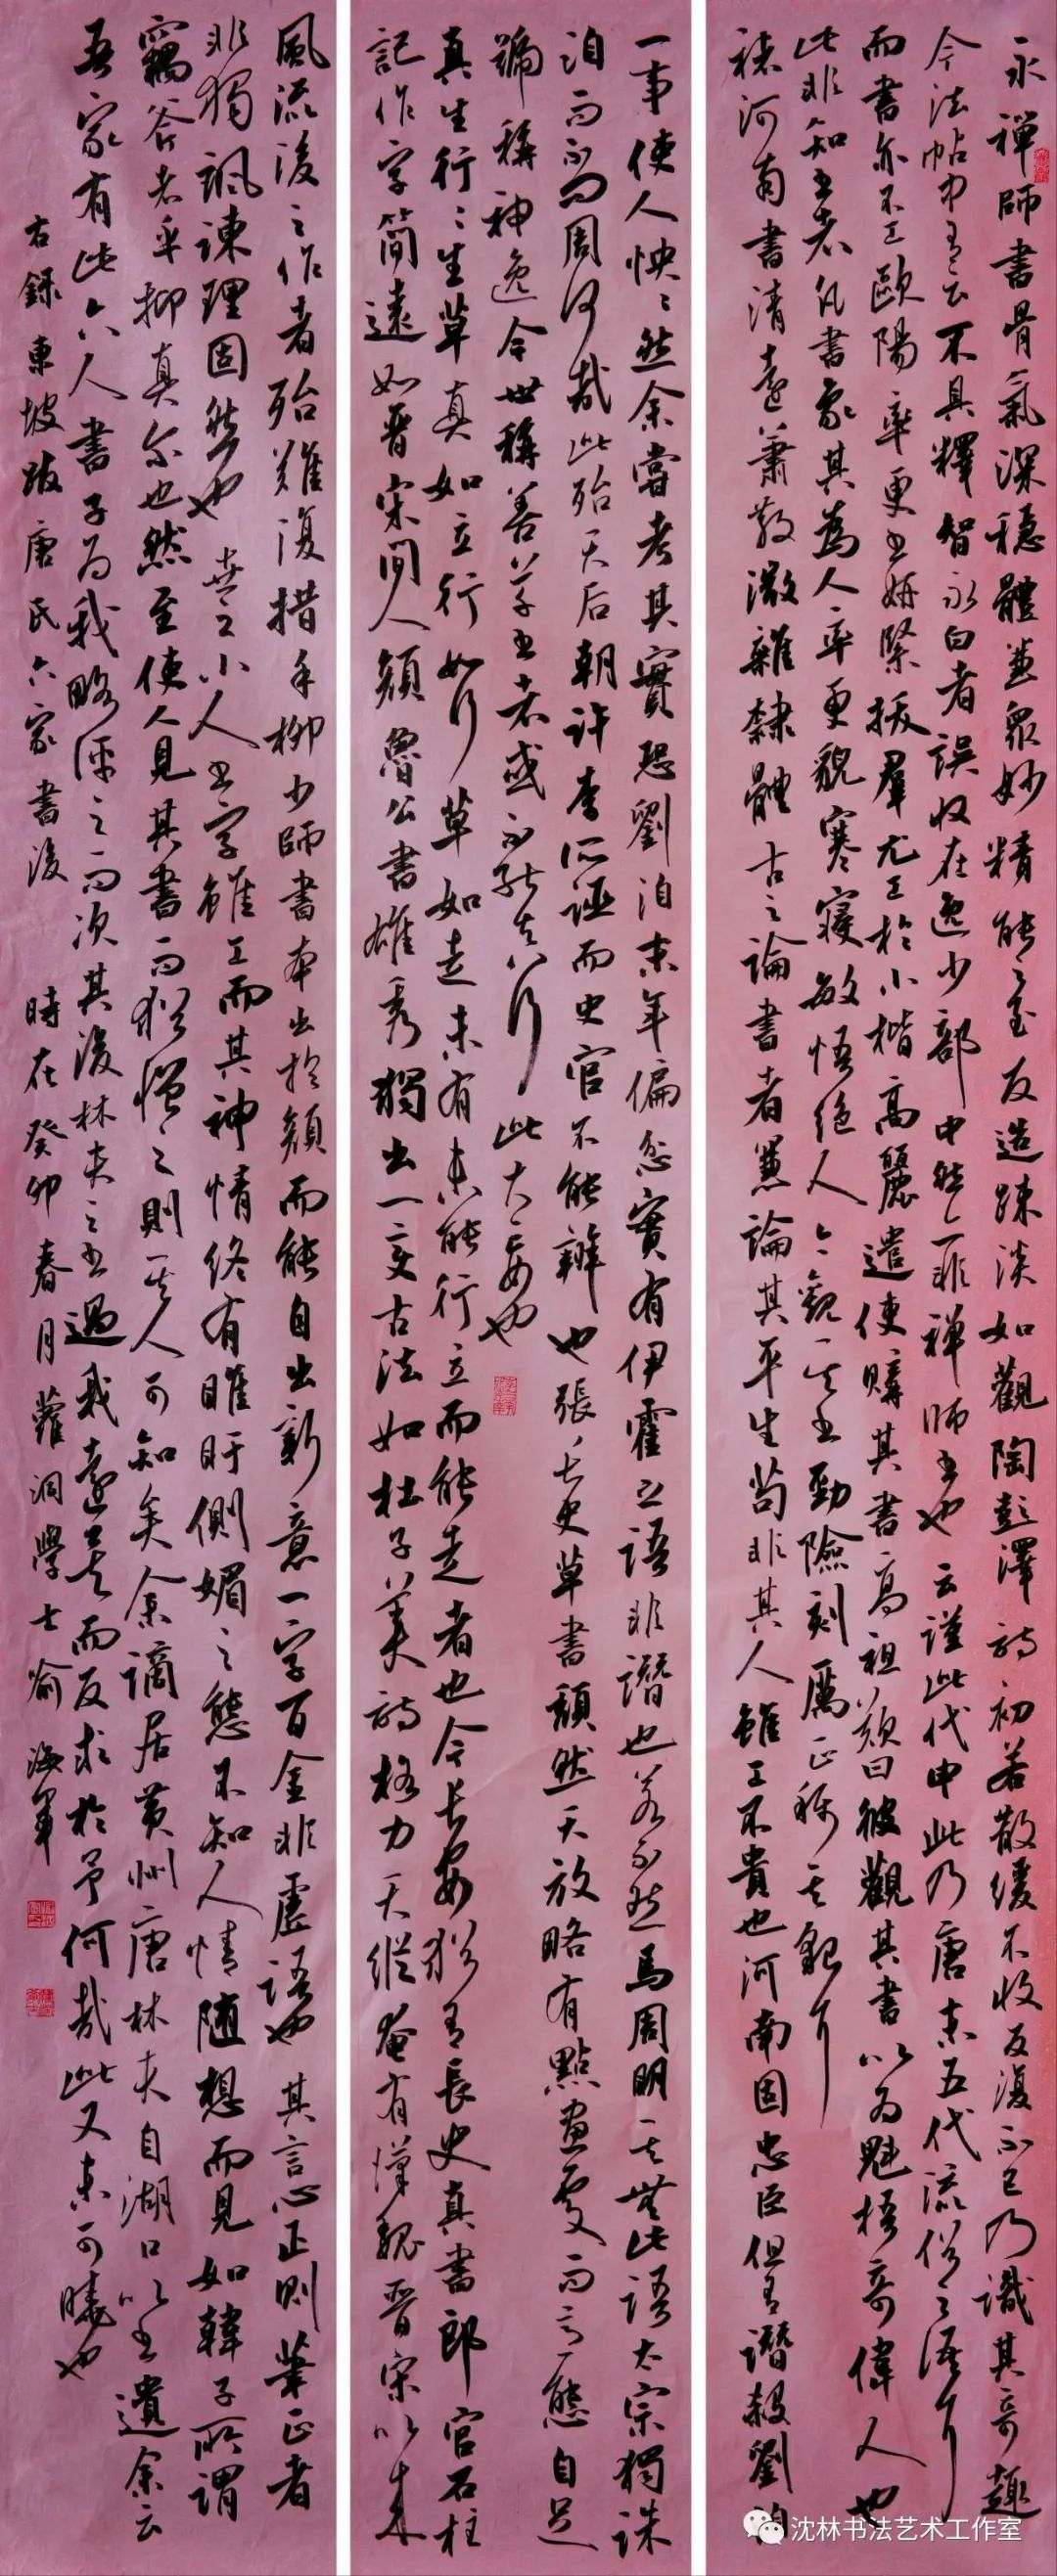 永禪師書骨氣深穩體蓋眾妙精能之至反造疎淡如觀陶彭澤詩初若散緩不收反復不已乃識其奇趣
今法帖中有云不具釋智永白者誤收在逸少部中然亦非禪師書也云謹此代申此乃唐末五代流俗之語耳
而書亦不工歐陽率更書妍緊拔羣尤工於小楷高麗遣使購其書高祖歎曰彼觀其書以為魁梧奇偉人也
此非知書者凡書象其為人率更貌寒寢敏悟絕人今觀其書勁險刻厲正稱其貌耳
褚河南書清遠蕭散微雜隸體古之論書者兼論其平生苟非其人雖工不貴也河南固忠臣但有譖殺劉洎
一事使人怏怏然余嘗考其實恐劉洎末年偏忿實有伊霍之語非譖也若不然馬周明其無此語太宗獨誅
洎而不問周何哉此殆天后朝許李所誣而史官不能辨也張長史草書頹然天放略有點畫處而意態自足
號稱神逸今世稱善草書者或不能真行此大妄也
真生行行生草真如立行如行草如走未有未能行立而能走者也今長安猶有長史真書郎官石柱
記作字簡遠如晉宋間人顏魯公書雄秀獨出一變古法如杜子美詩格力天縱奄有漢魏晉宋以來
風流後之作者殆難復措手柳少師書本出於顏而能自出新意一字百金非虛語也其言心正則筆正者
非獨諷諫理固然也世之小人書字雖工而其神情終有睢盱側媚之態不知人情隨想而見如韓子所謂
竊斧者乎抑真爾也然至使人見其書而猶憎之則其人可知矣余謫居黃州唐林夫自湖口以書遺余云
吾家有此六人書子為我略評之而次其後林夫之書過我遠矣而反求於予何哉此又未可曉也
右錄東坡跋唐氏六家書後 時在癸卯春月蘿洞學士喻海軍
沈林书法艺术工作室